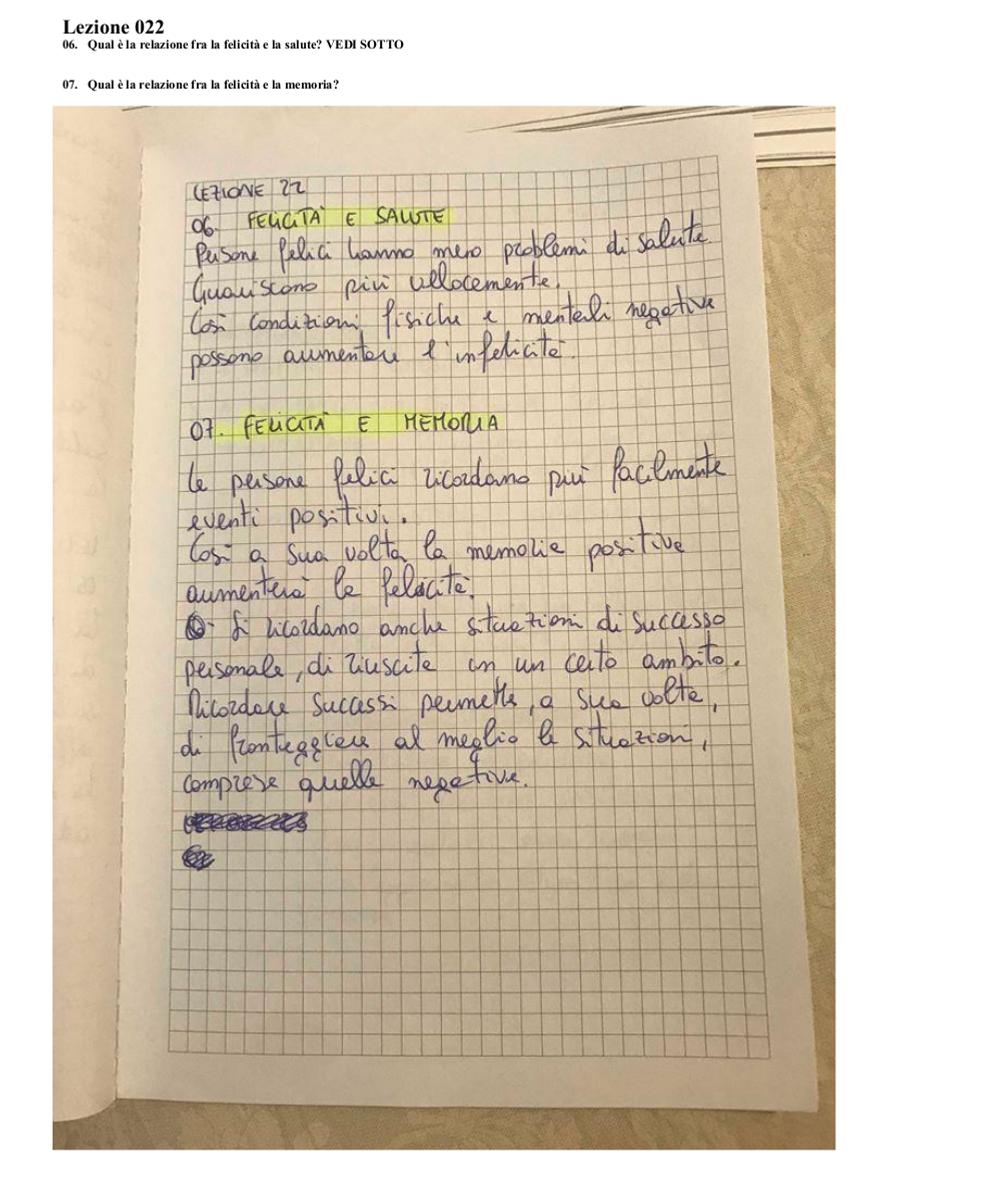 Lezione 022
06. Qual è la relazione fra la felicità e la salute? VEDI SOTTO
07. Qual è la relazione fra la felicità e la memoria?
LEZIONE 22
06. FELICITÀ E SALUTE
Persone felici hanno meno problemi di salute.
Guariscono più velocemente.
Così condizioni fisiche e mentali negative
possono aumentare l'infelicità.
07. FELICITÀ E MEMORIA
Le persone felici ricordano più facilmente
eventi positivi.
Così a sua volta la memoria positiva
aumenterà la felicità.
Si ricordano anche situazioni di successo
personale, di riuscite in un certo ambito.
Ricordare successi permette, a sua volta,
di fronteggiare al meglio le situazioni,
comprese quelle negative.